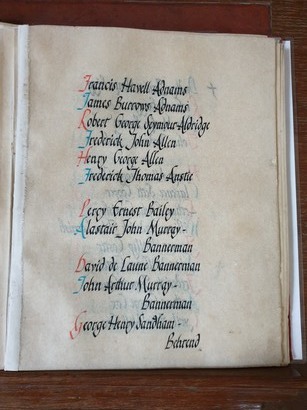 Francis Havell Adnams
James Burrows Adnams
Robert George Seymour-Aldridge
Frederick John Allen
Henry George Allen
Frederick Thomas Anstie
Percy Ernest Bailey
Alastair John Murray-
Bannerman
David de Laune Bannerman
John Arthur Murray-
Bannerman
George Henry Sandham-
Behrend